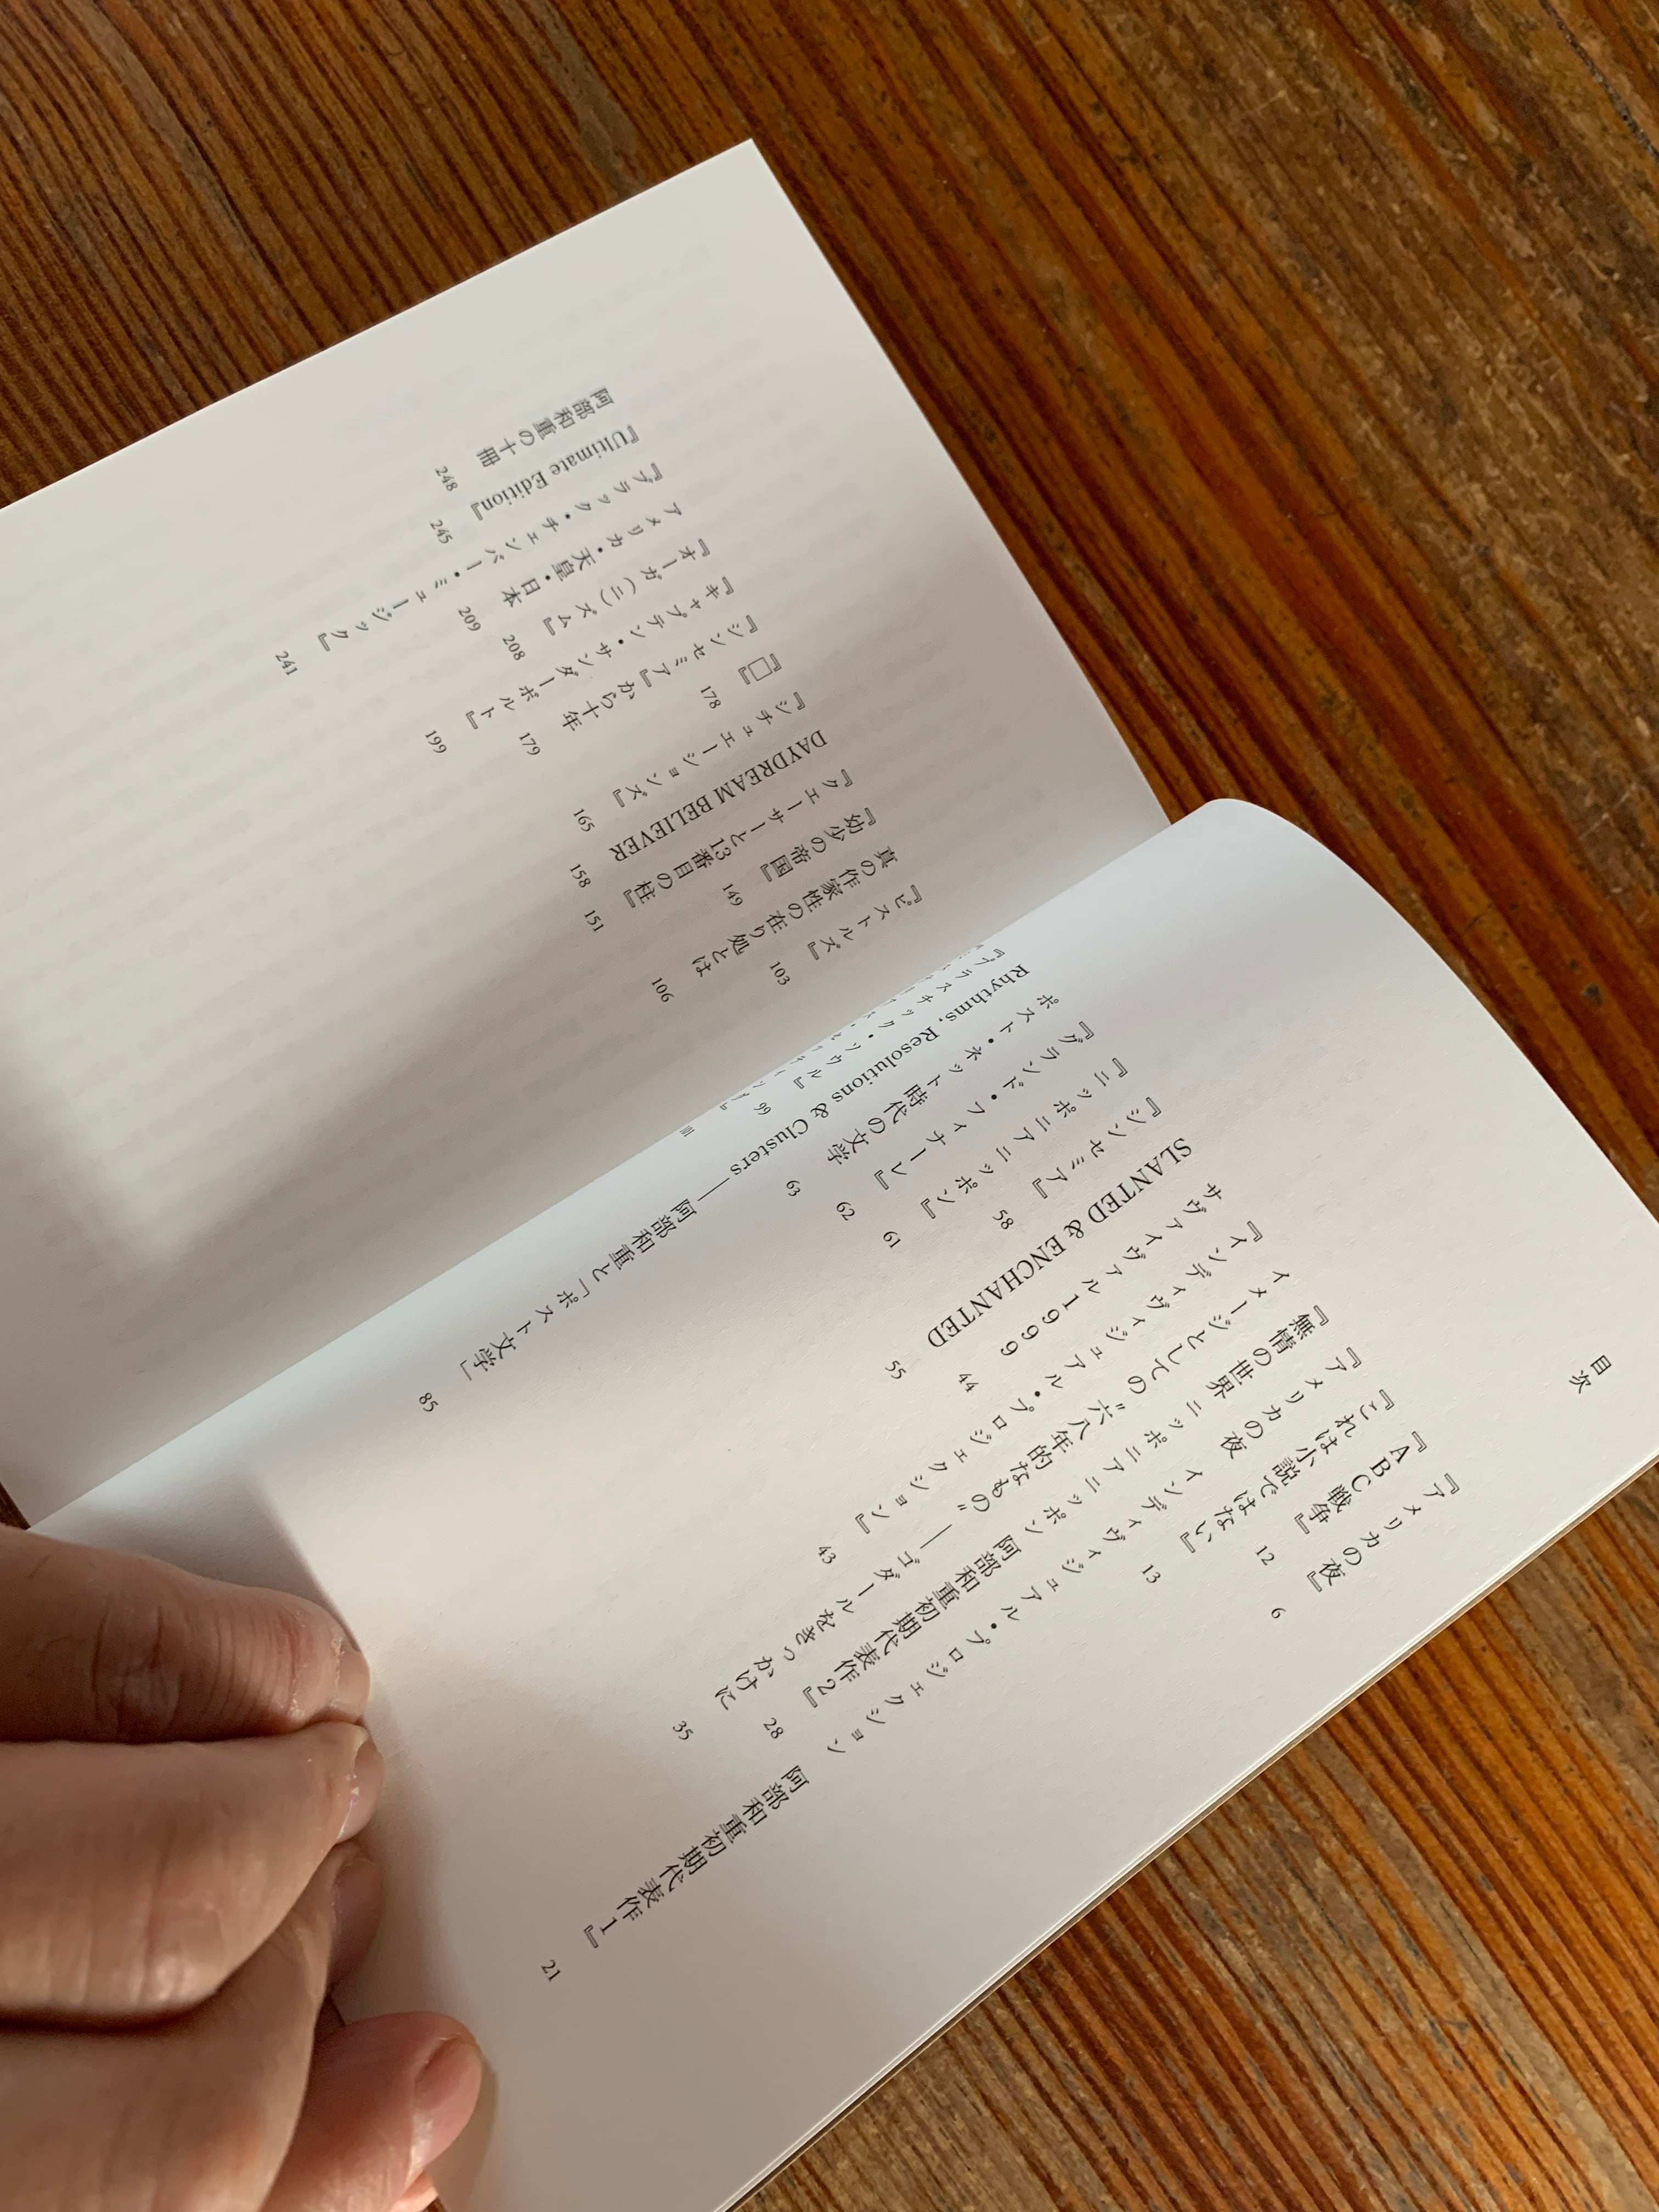 目次
『アメリカの夜』 6
『ABC戦争』 12
『これは小説ではない』 13
『アメリカの夜 インディヴィジュアル・プロジェクション 阿部和重初期代表作1』 21
『無情の世界 ニッポニアニッポン 阿部和重初期代表作2』 28
イメージとしての〝六八年的なもの〟——ゴダールをきっかけに 35
『インディヴィジュアル・プロジェクション』 43
サヴァイヴァル1999 44
SLANTED & ENCHANTED 55
『シンセミア』 58
『ニッポニアニッポン』 61
『グランド・フィナーレ』 62
ポスト・ネット時代の文学 63
Rhythms, Resolutions & Clusters——阿部和重と「ポスト文学」 85
『プラスチック・ソウル』 99
『ピストルズ』 103
真の作家性の在り処とは 106
『幼少の帝国』 149
『クエーサーと13番目の柱』 151
DAYDREAM BELIEVER 158
『シチュエーションズ』 165
『□』 178
『シンセミア』から十年 179
『キャプテンサンダーボルト』 199
『オーガ(ニ)ズム』 208
アメリカ・天皇・日本 209
『ブラック・チェンバー・ミュージック』 241
『Ultimate Edition』 245
阿部和重の十冊 248